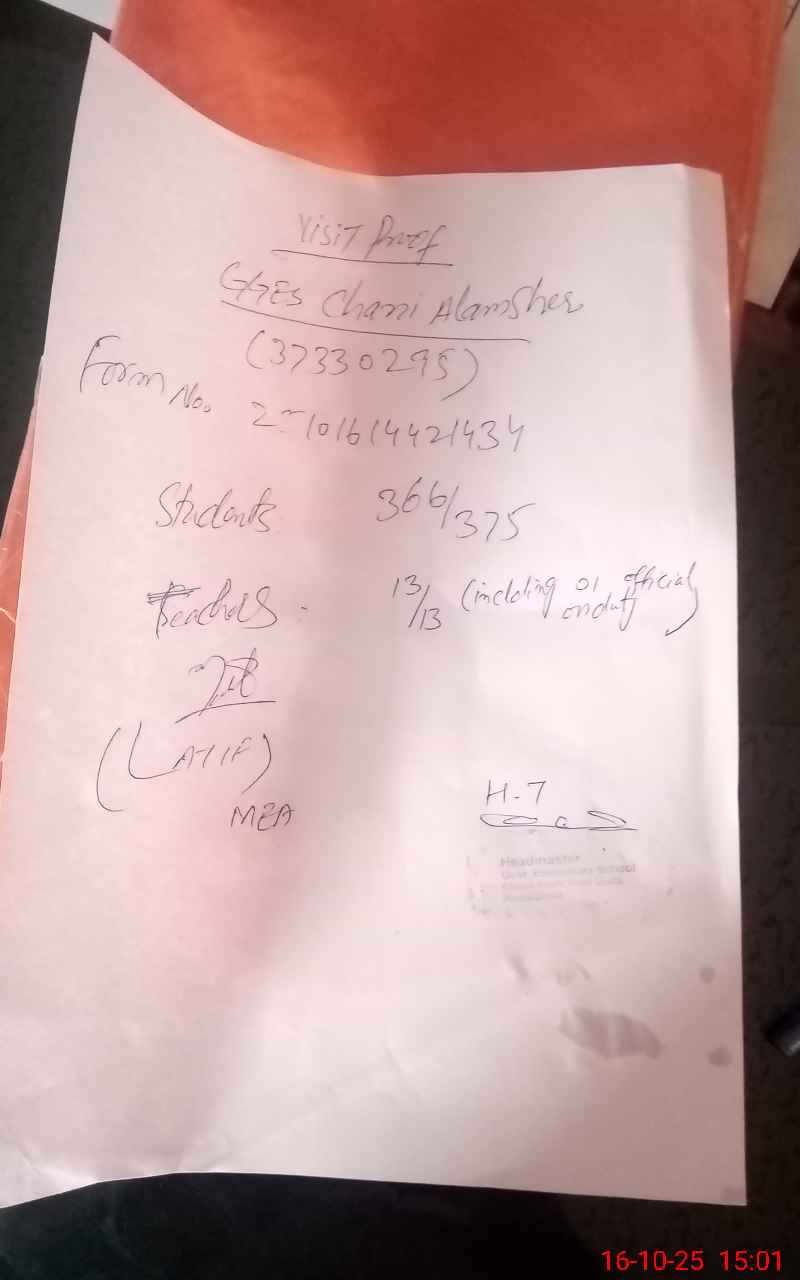 Visit Proof
GGES Chani Alamsher
(37330295)
Form No. 25101614421434
Students 366/375
Teachers 13/13 (including 01 official onduty)
(LATIF)
MEA
H.7
Headmaster
School
16-10-25 15:01